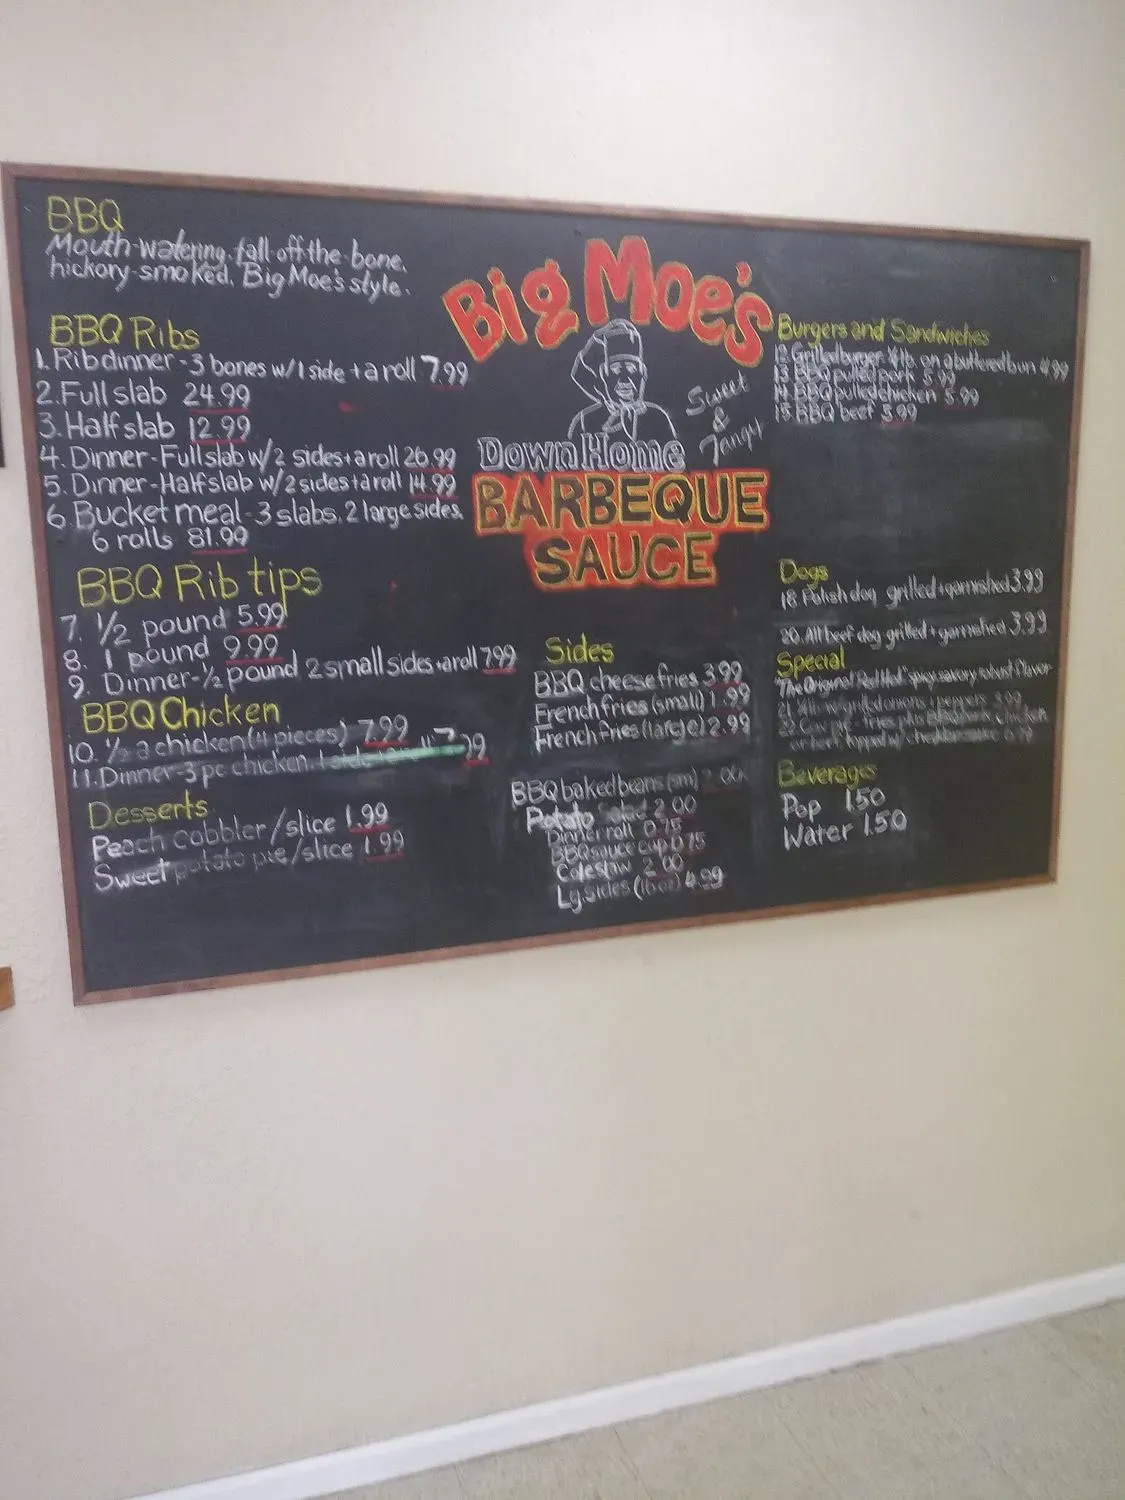 BBQ
Mouth-watering, fall-off-the-bone,
hickory-smoked, Big Moe's style.
BBQ Ribs
1. Rib dinner - 3 bones w/1 side + a roll 7.99
2. Full slab 24.99
3. Half slab 12.99
4. Dinner - Full slab w/2 sides + a roll 26.99
5. Dinner - Half slab w/2 sides + a roll 14.99
6. Bucket meal - 3 slabs, 2 large sides,
6 rolls 81.99
BBQ Rib tips
7. 1/2 pound 5.99
8. 1 pound 9.99
9. Dinner - 1/2 pound 2 small sides + a roll 7.99
BBQ Chicken
10. 1/2 a chicken (4 pieces) 7.99
11. Dinner - 3 pc chicken, 1 side
Desserts
Peach cobbler/slice 1.99
Sweet potato pie/slice 1.99
Big Moe's
Sweet
&
Tangy
Down Home
BARBEQUE
SAUCE
Sides
BBQ cheese fries 3.99
French fries (small) 1.99
French fries (large) 2.99
BBQ baked beans (sm) 2.00
Potato Salad 2.00
Dinner roll 0.75
BBQ sauce cup 0.75
Coleslaw 2.00
Lg. sides (16oz) 4.99
Burgers and Sandwiches
12. Grilled burger 1/4 lb. on a buttered bun 4.99
13. BBQ pulled pork 5.99
14. BBQ pulled chicken 5.99
15. BBQ beef 5.99
Dogs
18. Polish dog grilled + garnished 3.99
20. All beef dog grilled + garnished 3.99
Special
The Original Red Hot spicy savory robust flavor
grilled onions + peppers 3.99
Beverages
Pop 1.50
Water 1.50